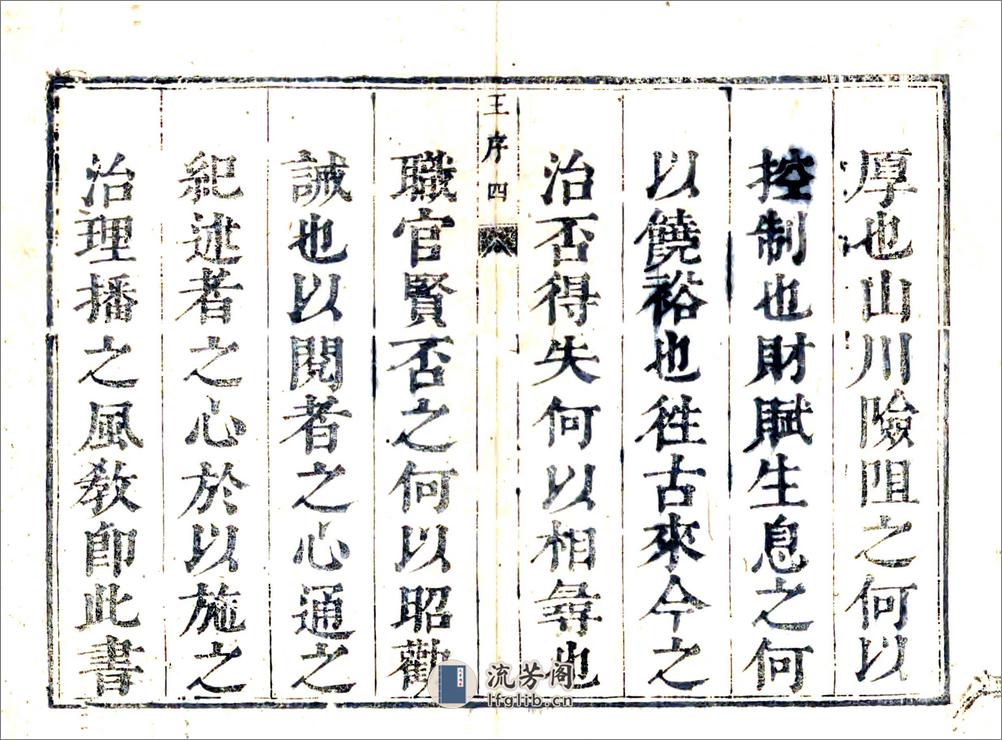 厚也山川險阻之何以
控制也財賦生息之何
以饒裕也徃古來今之
治否得失何以相尋也
王序 四
職官賢否之何以昭勸
誡也以閱者之心通之
紀述者之心於以施之
治理播之風教卽此書
流芳阁
lfglib.cn